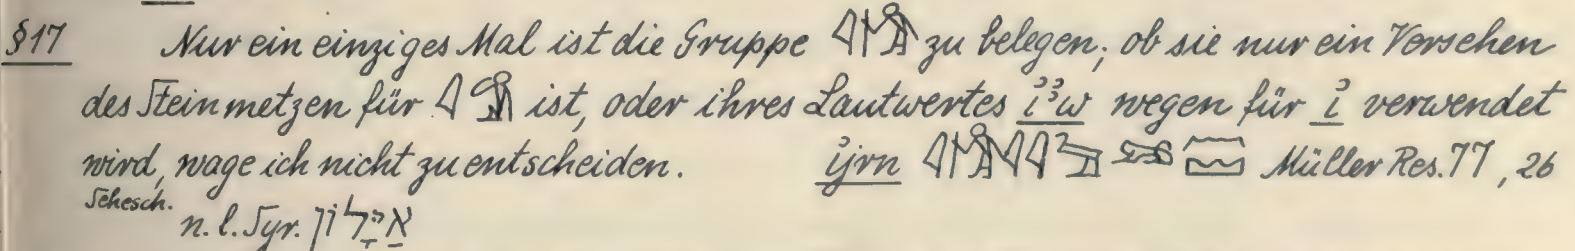 §17 Nur ein einziges Mal ist die Gruppe zu belegen; ob sie nur ein Versehen
des Steinmetzen für ist, oder ihres Lautwertes i͗ꜣw wegen für i͗ verwendet
wird, wage ich nicht zu entscheiden. i͗jrn Müller Res. 77, 26
Schesch. n. l. Syr. אַיָּלוֹן